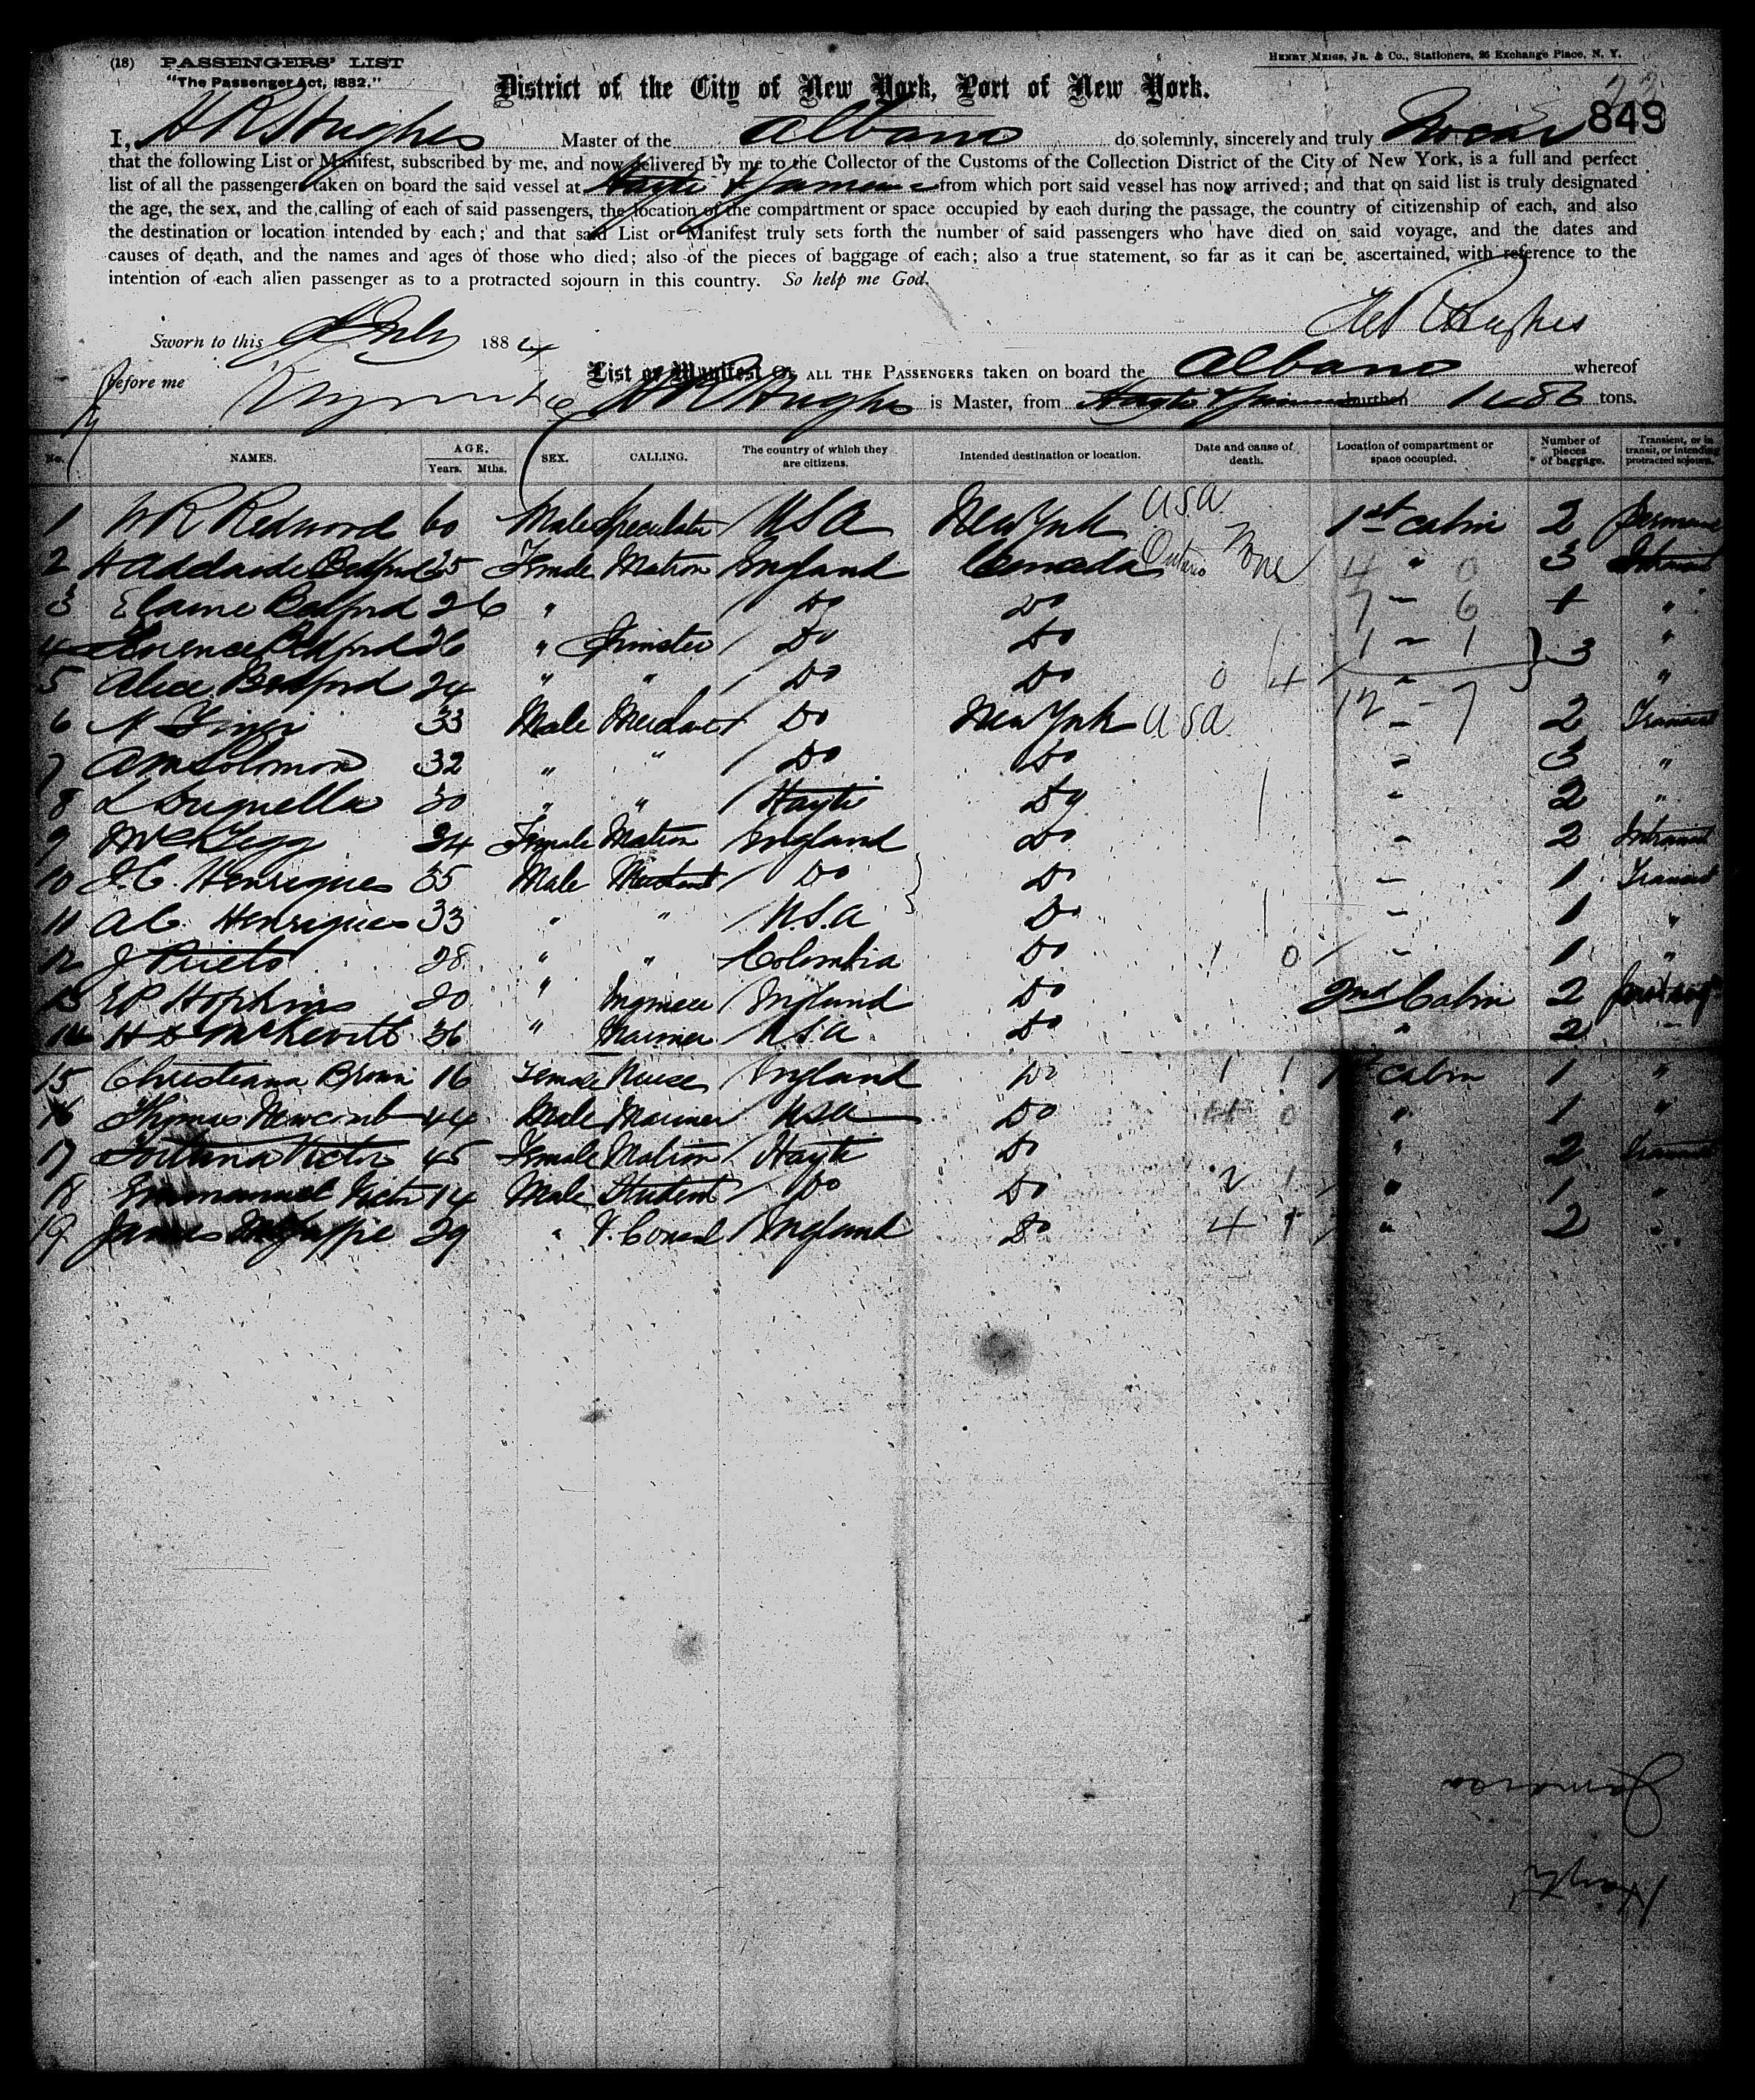 (18) PASSENGERS' LIST
"The Passenger Act, 1882."
HENRY MEIGS, JR. & CO., Stationers, 26 Exchange Place, N. Y.
District of the City of New York, Port of New York.
849
I, H R Hughes Master of the Albano do solemnly, sincerely and truly Swear
that the following List or Manifest, subscribed by me, and now delivered by me to the Collector of the Customs of the Collection District of the City of New York, is a full and perfect
list of all the passengers taken on board the said vessel at Hayti & Jamaica from which port said vessel has now arrived; and that on said list is truly designated
the age, the sex, and the calling of each of said passengers, the location of the compartment or space occupied by each during the passage, the country of citizenship of each, and also
the destination or location intended by each; and that said List or Manifest truly sets forth the number of said passengers who have died on said voyage, and the dates and
causes of death, and the names and ages of those who died; also of the pieces of baggage of each; also a true statement, so far as it can be ascertained, with reference to the
intention of each alien passenger as to a protracted sojourn in this country. So help me God.
Hughes
Sworn to this July 1884
Before me
List or Manifest OF ALL THE PASSENGERS taken on board the Albano whereof
H R Hughes is Master, from Hayti & Jamaica burthen 1486 tons.
No. NAMES. AGE. Years. Mths. SEX. CALLING. The country of which they are citizens. Intended destination or location. Date and cause of death. Location of compartment or space occupied. Number of pieces of baggage. Transient, or in transit, or intending protracted sojourn.
1 W R Redwood 60 Male Speculator / USA New York U.S.A. 1st cabin 2
2 H Adelaide Bedford Female Matron / England Canada Ontario None 4 " 0 3 Intransit
3 Elaine Bedford 26 " / Do Do 7 - 6 1 "
4 Florence Bedford 26 " Spinster / Do Do 1 - 1 } 3 "
5 Alice Bedford 24 " " / Do Do 0 4 / " "
6 33 Male Merchant / Do New York USA 12 - 7 2 Transient
7 A M Solomon 32 " " / Do Do " 3 "
8 30 " " / Hayti Do " 2 "
9 34 Female Matron / England Do " 2 Intransit
10 J. C. Henriques 35 Male Merchant / Do Do " 1 Transient
11 A C. Henriques 33 " " / U.S.A Do " 1 "
12 J Prieto 28 " " / Colombia Do 1 0 / " 1 "
13 E P Hopkins 20 " Engineer / England Do 2nd Cabin 2
14 H D McKevitt 36 " Mariner / U.S.A Do " 2 "
15 Christiana Brown 16 Female Nurse / England Do 1 1 1st cabin 1 "
16 Thomas Newcomb 44 Male Mariner USA Do 0 " 1 "
17 Victor 45 Female Matron / Hayti Do " 2 Transient
18 Emmanuel Victor 14 Male Student / Do Do 2 1 / " 1 "
19 James 29 " V. Consul / England Do 4 1 / " 2 "
Jamaica
Hayti